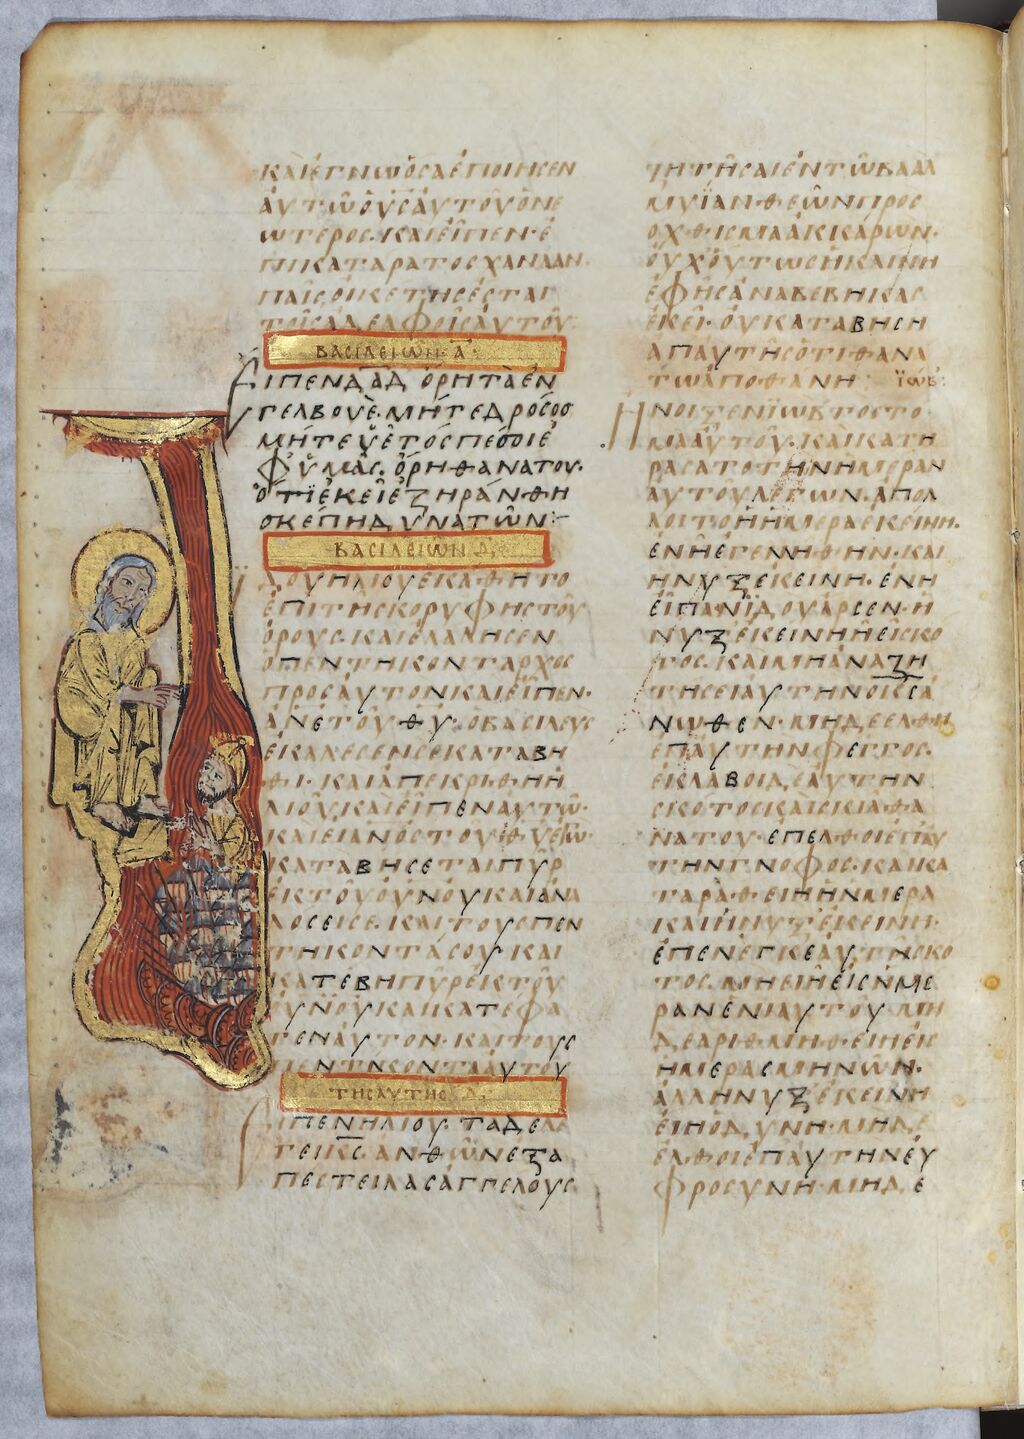 ΚΑῚ ἜΓΝΩ ὍΣΑ ἘΠΟΙΗΣΕΝ
ἈΥΤΩ͂ Ὁ ΥΣ ἈΥΤΟΥ͂ Ὁ ΝΕ
ΩΤΕΡΟΣ· ΚΑΙ ΕἾΠΕΝ· Ἐ
ΠΙΚΑΤΑΡΑΤΟΣ ΧΑΝΑΑΝ·
ΠΑΙ͂Σ ΟἸΚΕΤΗΣ ἜΣΤΑΙ
ΤΟΙ͂Σ ἈΔΕΛΦΟΙ͂Σ ἈΥΤΟΥ͂·
ΒΑΣΙΛΕΙΩΝ· Α·
ΕΙΠΕΝ ΔΑΔ ὈΡΗ ΤᾺ ἘΝ
ΓΕΛΒΟΥΈ· ΜΉΤΕ ΔΡΌΣΟΣ
ΜΉΤΕ ὙΕΤῸΣ ΠΕΣΟΙ Ἐ
Φ ὙΜΑ͂Σ· ὌΡΗ ΘΑΝΑΤΟΥ·
ὍΤΙ ἘΚΕΙ͂ ἘΞΗΡΆΝΘΗ
ΣΚΕΠΗ ΔΥΝΑΤΩ͂Ν:-
ΒΑΣΙΛΕΙΩΝ Δ·
ΪΔΟΥ ΗΛΙΟΥ ΕΚΑΘΗΤΟ
ἘΠΙ ΤΗΣ ΚΟΡΥΦΗΣ ΤΟΥ͂
ὌΡΟΥΣ· ΚΑΙ ἘΛΑΛΗΣΕΝ
Ὁ ΠΕΝΤΗΚΟΝΤΑΡΧΟΣ
ΠΡΟΣ ἈΥΤΟΝ ΚΑΙ ΕἾΠΕΝ·
ἈΝΕ ΤΟΥ͂ ΘΥ· Ὁ ΒΑΣΙΛΕΥΣ
ἘΚΑΛΕΣΕΝ ΣΕ ΚΑΤΑΒΗ
ΘΙ· ΚΑΙ ἈΠΕΚΡΙΘΗ Ἡ
ΛΙΟΥ ΚΑΙ ΕἾΠΕΝ ΑΥΤΩ͂·
ΚΑΙ ΕΙ ΑΝΟΣ ΤΟΥ ΘΥ ἘΓΩ·
ΚΑΤΑΒΗΣΕΤΑΙ ΠΥ͂Ρ
ἘΚ ΤΟΥ͂ ΟΥΝΟΥ ΚΑΙ ἈΝΑ
ΛΟΣΕΙ ΣΕ· ΚΑΙ ΤΟΥΣ ΠΕΝ
ΤΗΚΟΝΤΑ ΣΟΥ· ΚΑΙ
ΚΑΤΕΒΗ ΠΥ͂Ρ ἘΚ ΤΟΥ͂
ΟΥΝΟΥ ΚΑΙ ΚΑΤΕΦΑ
ΓΕΝ ἈΥΤΟΝ· ΚΑΙ ΤΟΥΣ
ΠΕΝΤΗΚΟΝΤΑ ἈΥΤΟΥ
ΤΗΣ ΑΥΤΗΣ Δ·
ΕΙΠΕΝ ΗΛΙΟΥ· ΤΑΔΕ ΛΕ
ΓΕΙ ΚΣ ἈΝΘ ὯΝ ΕΞΑ
ΠΕΣΤΕΙΛΑΣ ἈΓΓΕΛΟΥΣ
ΖΗΤΗ͂ΣΑΙ ἘΝ ΤΩ͂ ΒΑΑΛ
ΜΥΪΑΝ ΘΕΩ͂Ν ΠΡΟΣ
ὈΧΘΙΣΜΑ ἈΚΚΑΡΩΝ·
ὈΥΧ ὉΥΤΩΣ Ἡ ΚΛΙΝΗ
ἘΦ ΗΣ ἈΝΑΒΕΒΗΚΑΣ
ἘΚΕΙ· ΟΥ ΚΑΤΑΒΗΣΗ
ἈΠ ΑΥΤΗΣ ὍΤΙ ΘΑΝΑ
ΤΩ ἈΠΟΘΑΝΗ: ΪΩΒ:
ΗΝΟΙΞΕΝ ΪΩΒ ΤΟ ΣΤΟ
ΜΑ ἈΥΤΟΥ· ΚΑΙ ΚΑΤΗ
ΡΑΣΑΤΟ ΤΗΝ ἩΜΕΡΑΝ
ἈΥΤΟΥ ΛΕΓΩΝ· ἈΠΟΛ
ΛΟΙΤΟ Ἡ ἩΜΕΡΑ ΕΚΕΙΝΗ·
ἘΝ Η ἘΓΕΝΝΗΘΗΝ· ΚΑΙ
Ἡ ΝΥΞ ἘΚΕΙΝΗ· ἘΝ Η
ΕΙΠΑΝ ΪΔΟΥ ἌΡΣΕΝ· Ἡ
ΝΥΞ ἘΚΕΙΝΗ ΕΙΗ ΣΚΟ
ΤΟΣ· ΚΑΙ ΜΗ ἈΝΑΖΗ
ΤΗΣΕΙ ἈΥΤΗΝ Ὁ ΚΣ Ἀ
ΝΩΘΕΝ· ΜΗΔΕ ΕΛΘΗ
ΕΠ ἈΥΤΗΝ ΦΕΓΓΟΣ·
ἘΚΛΑΒΟΙ ΔΕ ΑΥΤΗΝ
ΣΚΟΤΟΣ ΚΑΙ ΣΚΙΑ ΘΑ
ΝΑΤΟΥ· ΕΠΕΛΘΟΙ ἘΠ ΑΥ
ΤΗΝ ΓΝΟΦΟΣ· ΚΑΙ ΚΑ
ΤΑΡΑΘΕΙΗ Ἡ ἩΜΕΡΑ
ΚΑΙ Ἡ ΝΥΞ ἘΚΕΙΝΗ·
ἘΠΕΝΕΓΚΕ ΑΥΤΗ ΣΚΟ
ΤΟΣ· ΜΗ ΕΙΗ ΕΙΣ ἩΜΕ
ΡΑΝ ΕΝΙΑΥΤΟΥ· ΜΗ
ΔΕ ΑΡΙΘΜΗΘΕΙΗ ΕΙΣ
ἩΜΕΡΑΣ ΜΗΝΩΝ·
ἈΛΛ Ἡ ΝΥΞ ἘΚΕΙΝΗ
ΕΙΗ ὈΔΥΝΗ· ΜΗΔΕ
ΕΛΘΟΙ ΕΠ ἈΥΤΗΝ ἘΥ
ΦΡΟΣΥΝΗ· ΜΗΔΕ